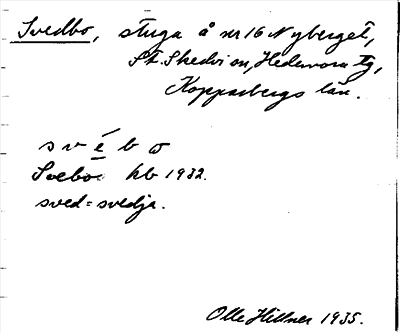 Svedbo, stuga å nr 16 Nyberget,
St. Skedvi sn, Hedemora tg,
Kopparbergs län.
s v é b o
Svebo kb 1932.
sved = svedja.
Olle Hillner 1935.